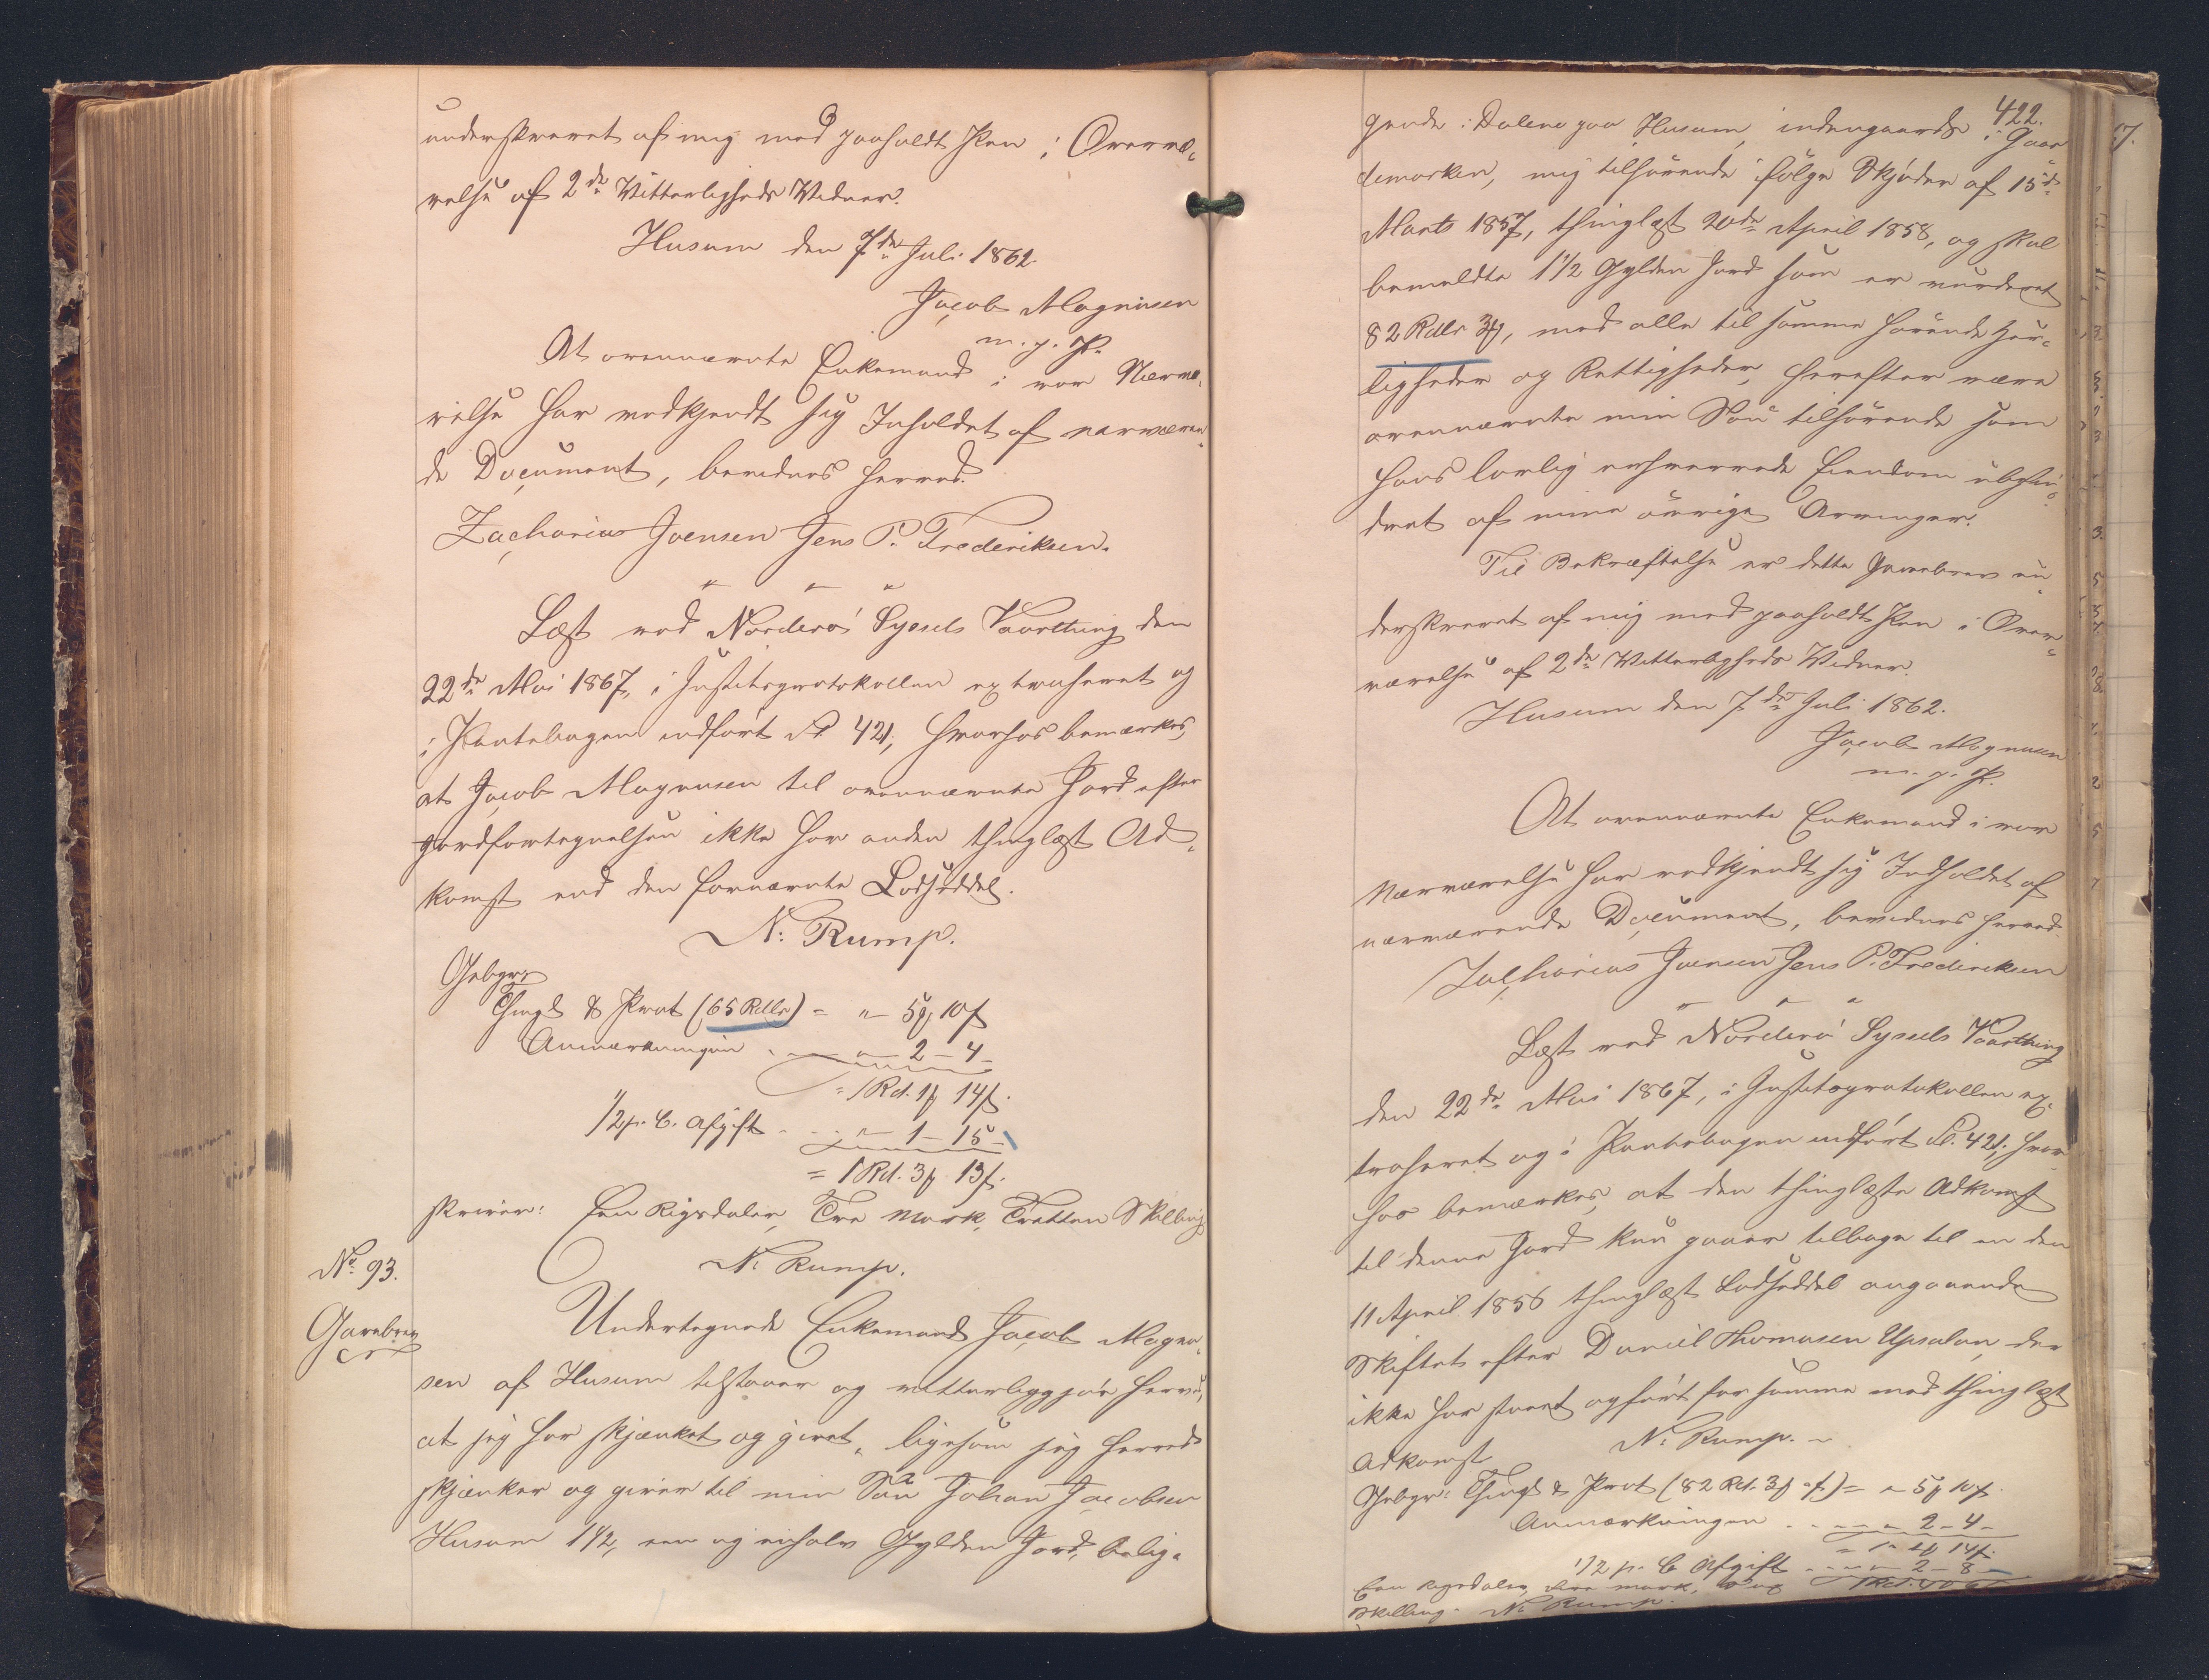 underskrevet af mig med paaholdt Pen i Overvæ-
relse af 2de Vitterligheds Vidner.
Husum den 7de Juli 1862.
Jacob Magnusen
m. p. P.
At ovennævnte Enkemand i vor Nærvæ-
relse har vedkjendt sig Inholdet af nærværen-
de Document, bevidnes herved.
Zacharias Joensen Jens P. Frederiksen.
Læst ved Norderö Syssels Vaarthing den
22de Mai 1867, i Justitsprotokollen extraheret og
i Pantebogen indført Fol. 421, hvorhos bemærkes,
at Jacob Magnusen til ovennævnte Jord efter
Jordfortegnelsen ikke har anden thinglæst Ad-
komst end den fornævnte Lodseddel.
N: Rump.
Gebyr
Thingl & Prot (65 Rdlr) = " 5 ₻ 10 ß
Anmærkningen . . " 2 - 4 -
= 1 Rd. 1 ₻ 14 ß.
1/2 p. C. Afgift . . " 1 - 15 -
= 1 Rd. 3 ₻ 13 ß.
skriver: Een Rigsdaler, Tre Mark, Tretten Skilling
N: Rump.
No 93.
Gavebrev
Undertegnede Enkemand Jacob Magnu-
sen af Husum tilstaaer og vitterliggjør herved,
at jeg har skjænket og givet, ligesom jeg herved
skjænker og giver til min Sön Johan Jacobsen
Husum 1 1/2, een og enhalv Gylden Jord, belig-
422.
gende i Dalene paa Husum, indengaards i Gaar
demarken, mig tilhørende ifølge Skjøder af 15de
Marts 1857, thinglæst 20de April 1858, og skal
bemeldte 1 1/2 Gylden Jord som er vurderet
82 Rdlr 3 ₻, med alle til samme hørende Her-
ligheder og Rettigheder, herefter være
ovennævnte min Sön tilhørende som
hans lovlig erhvervede Eiendom uhin-
dret af mine øvrige Arvinger.
Til Bekræftelse er dette Gavebrev un-
derskrevet af mig med paaholdt Pen i Over-
værelse af 2de Vitterligheds Vidner.
Husum den 7de Juli 1862.
Jacob Magnusen
m. p. P.
At ovennævnte Enkemand i vor
Nærværelse har vedkjendt sig Indholdet af
nærværende Document, bevidnes herved.
Zacharias Joensen Jens P. Frederiksen
Læst ved Norderö Syssels Vaarthing
den 22de Mai 1867, i Justitsprotokollen ex-
traheret og i Pantebogen indført Fol. 421, hvor-
hos bemærkes, at den thinglæste Adkomst
til denne Jord kun gaaer tilbage til en den
11 April 1856 thinglæst Lodseddel angaaende
Skiftet efter Daniel Thomasen Upsalon, der
ikke har staaet opført for samme med thinglæst
Adkomst N: Rump.
Gebyr: Thingl & Prot (82 Rd. 3 ₻ " ß) = " 5 ₻ 10 ß.
Anmærkningen . . " 2 - 4 -
= 1 " 1 ₻ 14 ß.
1/2 p. C Afgift . . " 2 - 8 -
Een Rigsdaler, fire Mark,
Skilling. N: Rump.